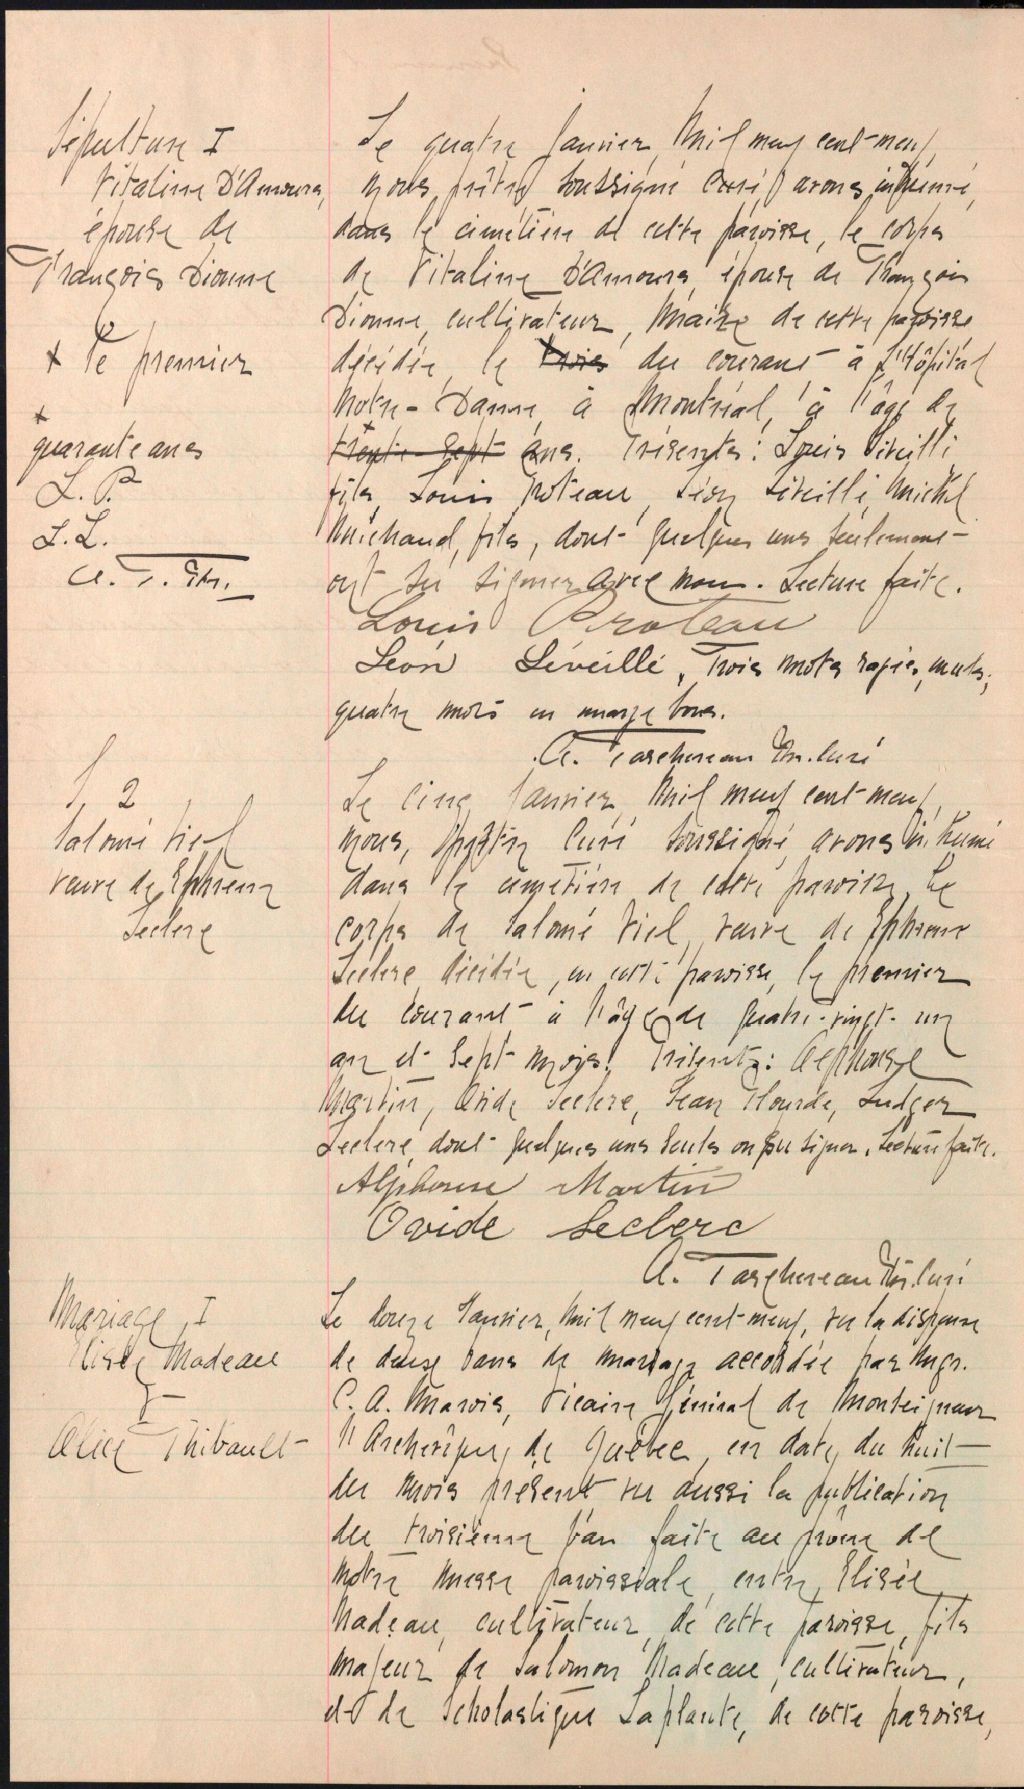 Sépulture I
Vitaline D'Amours,
épouse de
François Dionne
x le premier
x
quarante ans
L. P.
L. L.
A. T. Ptr.
Le quatre Janvier, Mil neuf cent-neuf,
nous, prêtre soussigné Curé, avons inhumé,
dans le cimetière de cette paroisse, le corps
de Vitaline D'Amours, épouse de François
Dionne, cultivateur, Maire de cette paroisse
décédée, le trois du courant à l'Hôpital
Notre-Dame, à Montréal, à l'âge de
trente-sept ans. Présents: Louis Léveillé
fils, Louis Proteau, Léon Léveillé, Michel
Michaud, fils, dont quelques uns seulement
ont su signer avec nous. Lecture faite.
Louis Proteau
Léon Léveillé, Trois mots rayés, nuls;
quatre mots en marge bons.
A. Taschereau Ptr. Curé
S. 2
Salomé Viel
veuve de Ephrem
Leclerc
Le cinq Janvier, Mil neuf cent-neuf,
nous, prêtre Curé soussigné, avons inhumé
dans le cimetière de cette paroisse, le
corps de Salomé Viel, veuve de Ephrem
Leclerc, décédée, en cette paroisse, le premier
du courant à l'âge de quatre-vingt-un
an et sept mois. Présents: Alphonse
Martin, Ovide Leclerc, Jean Plourde, Ludger
Leclerc, dont quelques uns seuls ont su signer. Lecture faite.
Alphonse Martin
Ovide Leclerc
A. Taschereau Ptr. Curé
Mariage I
Elisée Nadeau
&
Alice Thibault
Le douze Janvier, Mil neuf cent-neuf, vu la dispense
de deux bans de mariage accordée par Mgr.
C. A. Marois, Vicaire Général de Monseigneur
l'Archevêque de Québec, en date du huit
du mois présent, vu aussi la publication
du troisième ban faite au prône de
notre messe paroissiale, entre Elisée
Nadeau, cultivateur, de cette paroisse, fils
majeur de Salomon Nadeau, cultivateur,
et de Scholastique Laplante, de cette paroisse,